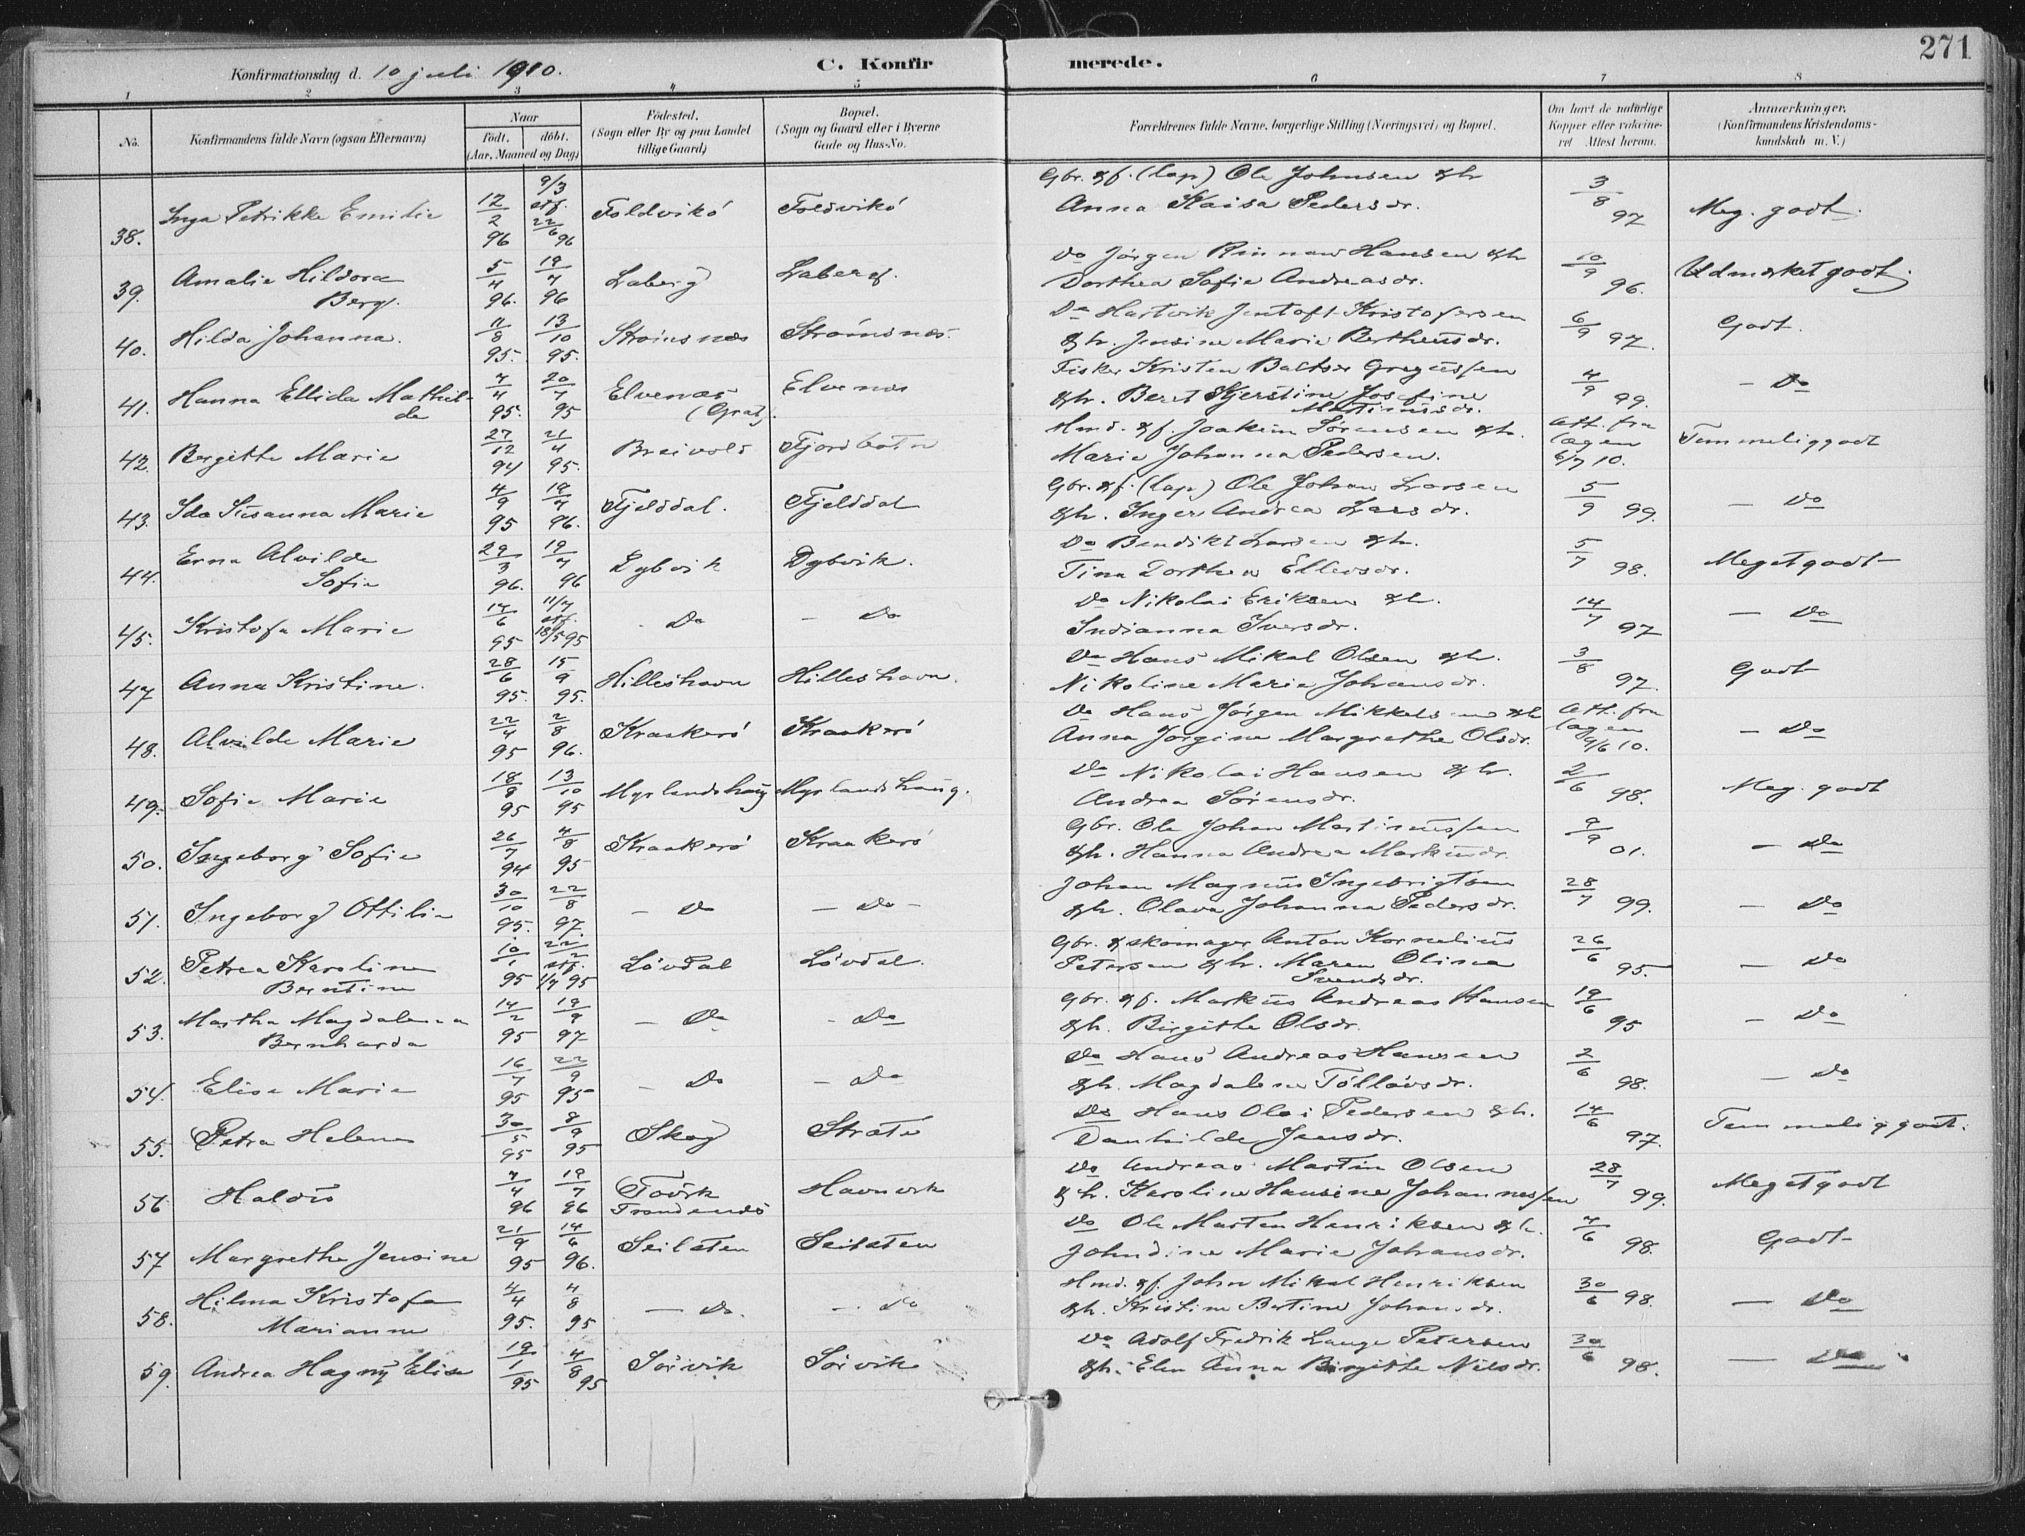 271
Konfirmationsdag d. 10 juli 1910.
C. Konfir merede.
1 2 3 4 5 6 7 8
No.
Konfirmandens fulde Navn (ogsaa Efternavn)
Naar
født. døbt.
(Aar, Maaned og Dag)
Fødested.
(Sogn eller By og paa Landet
tillige Gaard)
Bopæl.
(Sogn og Gaard eller i Byerne
Gade og Hus-No.
Forældrenes fulde Navne, borgerlige Stilling (Næringsvei) og Bopæl.
Om havt de naturlige
Kopper eller vakcine-
ret Attest herom.
Anmærkninger.
(Konfirmandens Kristendoms-
kundskab m. V.)
38. Inga Petrikke Emilie 12/2 96 9/3 stf. 22/6 96 Foldvikø Foldvikø Gbr. & f. (lap) Ole Johnsen & h Anna Kaisa Pedersdr. 3/8 97 Meg. godt.
39. Amalie Hildora Berg. 5/4 96. 19/7 96 Laberg Laberg. Do Jørgen Rinnaw Hansen & h Dorthea Sofie Andreasdr. 10/9 96. Udmerket godt.
40. Hilda Johanna. 11/8 95. 13/10 95. Strømsnæs Strømsnæs. Do Hartvik Jentoft Kristofersen & h. Jensine Marie Bertheusdr. 6/9 97. Godt.
41. Hanna Ellida Mathilde 7/4 95. 20/7 95 Elvenæs (Grat.) Elvenæs Fisker Kristen Baltser Gregussen & h. Beret Kjerstine Josefine Martinusdr. 4/9 99. — Do
42. Bergitte Marie 27/12 94 21/4 95. Breivold Fjordbotn Hmd. & f. Joakim Sørensen & h. Marie Johanna Pedersen. Att. fra lægen 6/7 10. Temmelig godt
43. Ida Susanna Marie 4/9 95 19/7 96. Fjelddal. Fjelddal Gbr. & f. (lap) Ole Johan Larsen & h. Inger Andrea Larsdr. 5/9 99. — Do
44. Erna Alvilde Sofie 29/3 96. 19/7 96 Dybvik Dybvik. Do Bendikt Larsen & h. Tina Dorthea Ellevsdr. 5/7 98. Meget godt
45. Kristofa Marie 17/6 95 11/7 stf. 18/5 95 - Do — Do Do Nikolai Eriksen & h. Indianna Iversdr. 14/7 97 — Do
47 Anna Kristine. 28/6 95. 15/9 95. Hilleshavn Hilleshavn. Do Hans Mikal Olsen & h. Nikoline Marie Johansdr. 3/8 97. Godt
48. Alvilde Marie 22/4 95 2/8 96. Kraakerø Kraakerø Do Hans Jørgen Mikkelsen & h Anna Jørgine Margrethe Olsdr. Att. fra lægen 9/6 10. — Do
49. Sofie Marie 18/8 95 13/10 95 Myrlandshaug Myrlandshaug. Do Nikolai Hansen & h. Andrea Sørensdr. 2/6 98. Meg. godt
50. Ingeborg Sofie 26/7 94 4/8 95 Kraakerø Kraakerø Gbr. Ole Johan Martinussen & h. Hanna Andrea Markusdr. 9/9 01. — Do
51. Ingeborg Ottilie 30/10 95. 22/8 97. — Do — Do — Johan Magnus Ingebrigtsen & h. Olava Johanna Pedersdr. 28/7 99. — Do
52. Petrea Karoline Berntine 10/1 95 22/2 stf. 1/7 95 Løvdal Løvdal. Gbr. & skomager Anton Kornelius Petersen & h. Maren Olina Svendsdr. 26/6 95. — Do
53. Martha Magdalena Bernharda 14/2 95 19/9 97 — Do - Do Gbr. & f. Markus Andreas Hansen & h. Birgithe Olsdr. 19/6 95 — Do
54. Elise Marie 16/7 95 22/9 95 — Do — Do Do Hans Andreas Hansen & h. Magdalena Tølløvsdr. 2/6 98. — Do
55. Petra Helene 30/5 95 8/9 95 Skog Strate Do Hans Olai Pedersen & h. Danhilde Jensdr. 14/6 97. Temmelig godt.
56 Haldis 7/4 96 19/7 96 Tovik Trondenæs Havnvik Do Andreas Martin Olsen & h. Karoline Hansine Johannessen 28/7 99. Meget godt
57 Margrethe Jensine 21/9 95 14/6 96. Seilæten Seilæten Do Ole Morten Henriksen & h. Johndine Marie Johansdr. 7/6 98. Godt
58. Hilma Kristofa Marianne 4/4 95. 4/8 95 — Do. — Do Hmd. & f. John Mikal Henriksen & h. Kristine Bertine Johansdr. 30/6 98. — Do
59. Andrea Hagny Elise 19/1 95 4/8 95 Sørvik Sørvik Do Adolf Fredrik Lange Petersen & h. Elen Anna Birgitte Nilsdr. 30/6 98. — Do